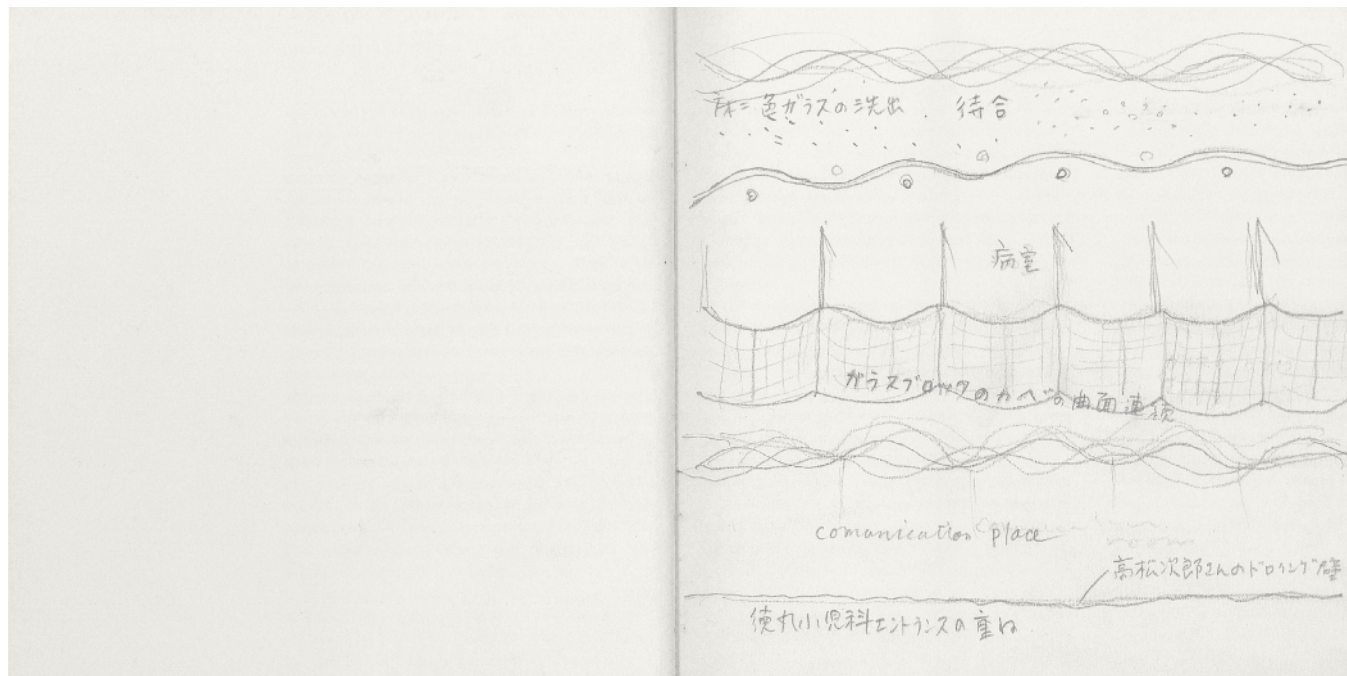 床=色ガラスの洗出 待合
病室
ガラスブロックのカベの曲面連続
comanication place
高松次郎さんのドローイング壁
徳丸小児科エントランスの重ね